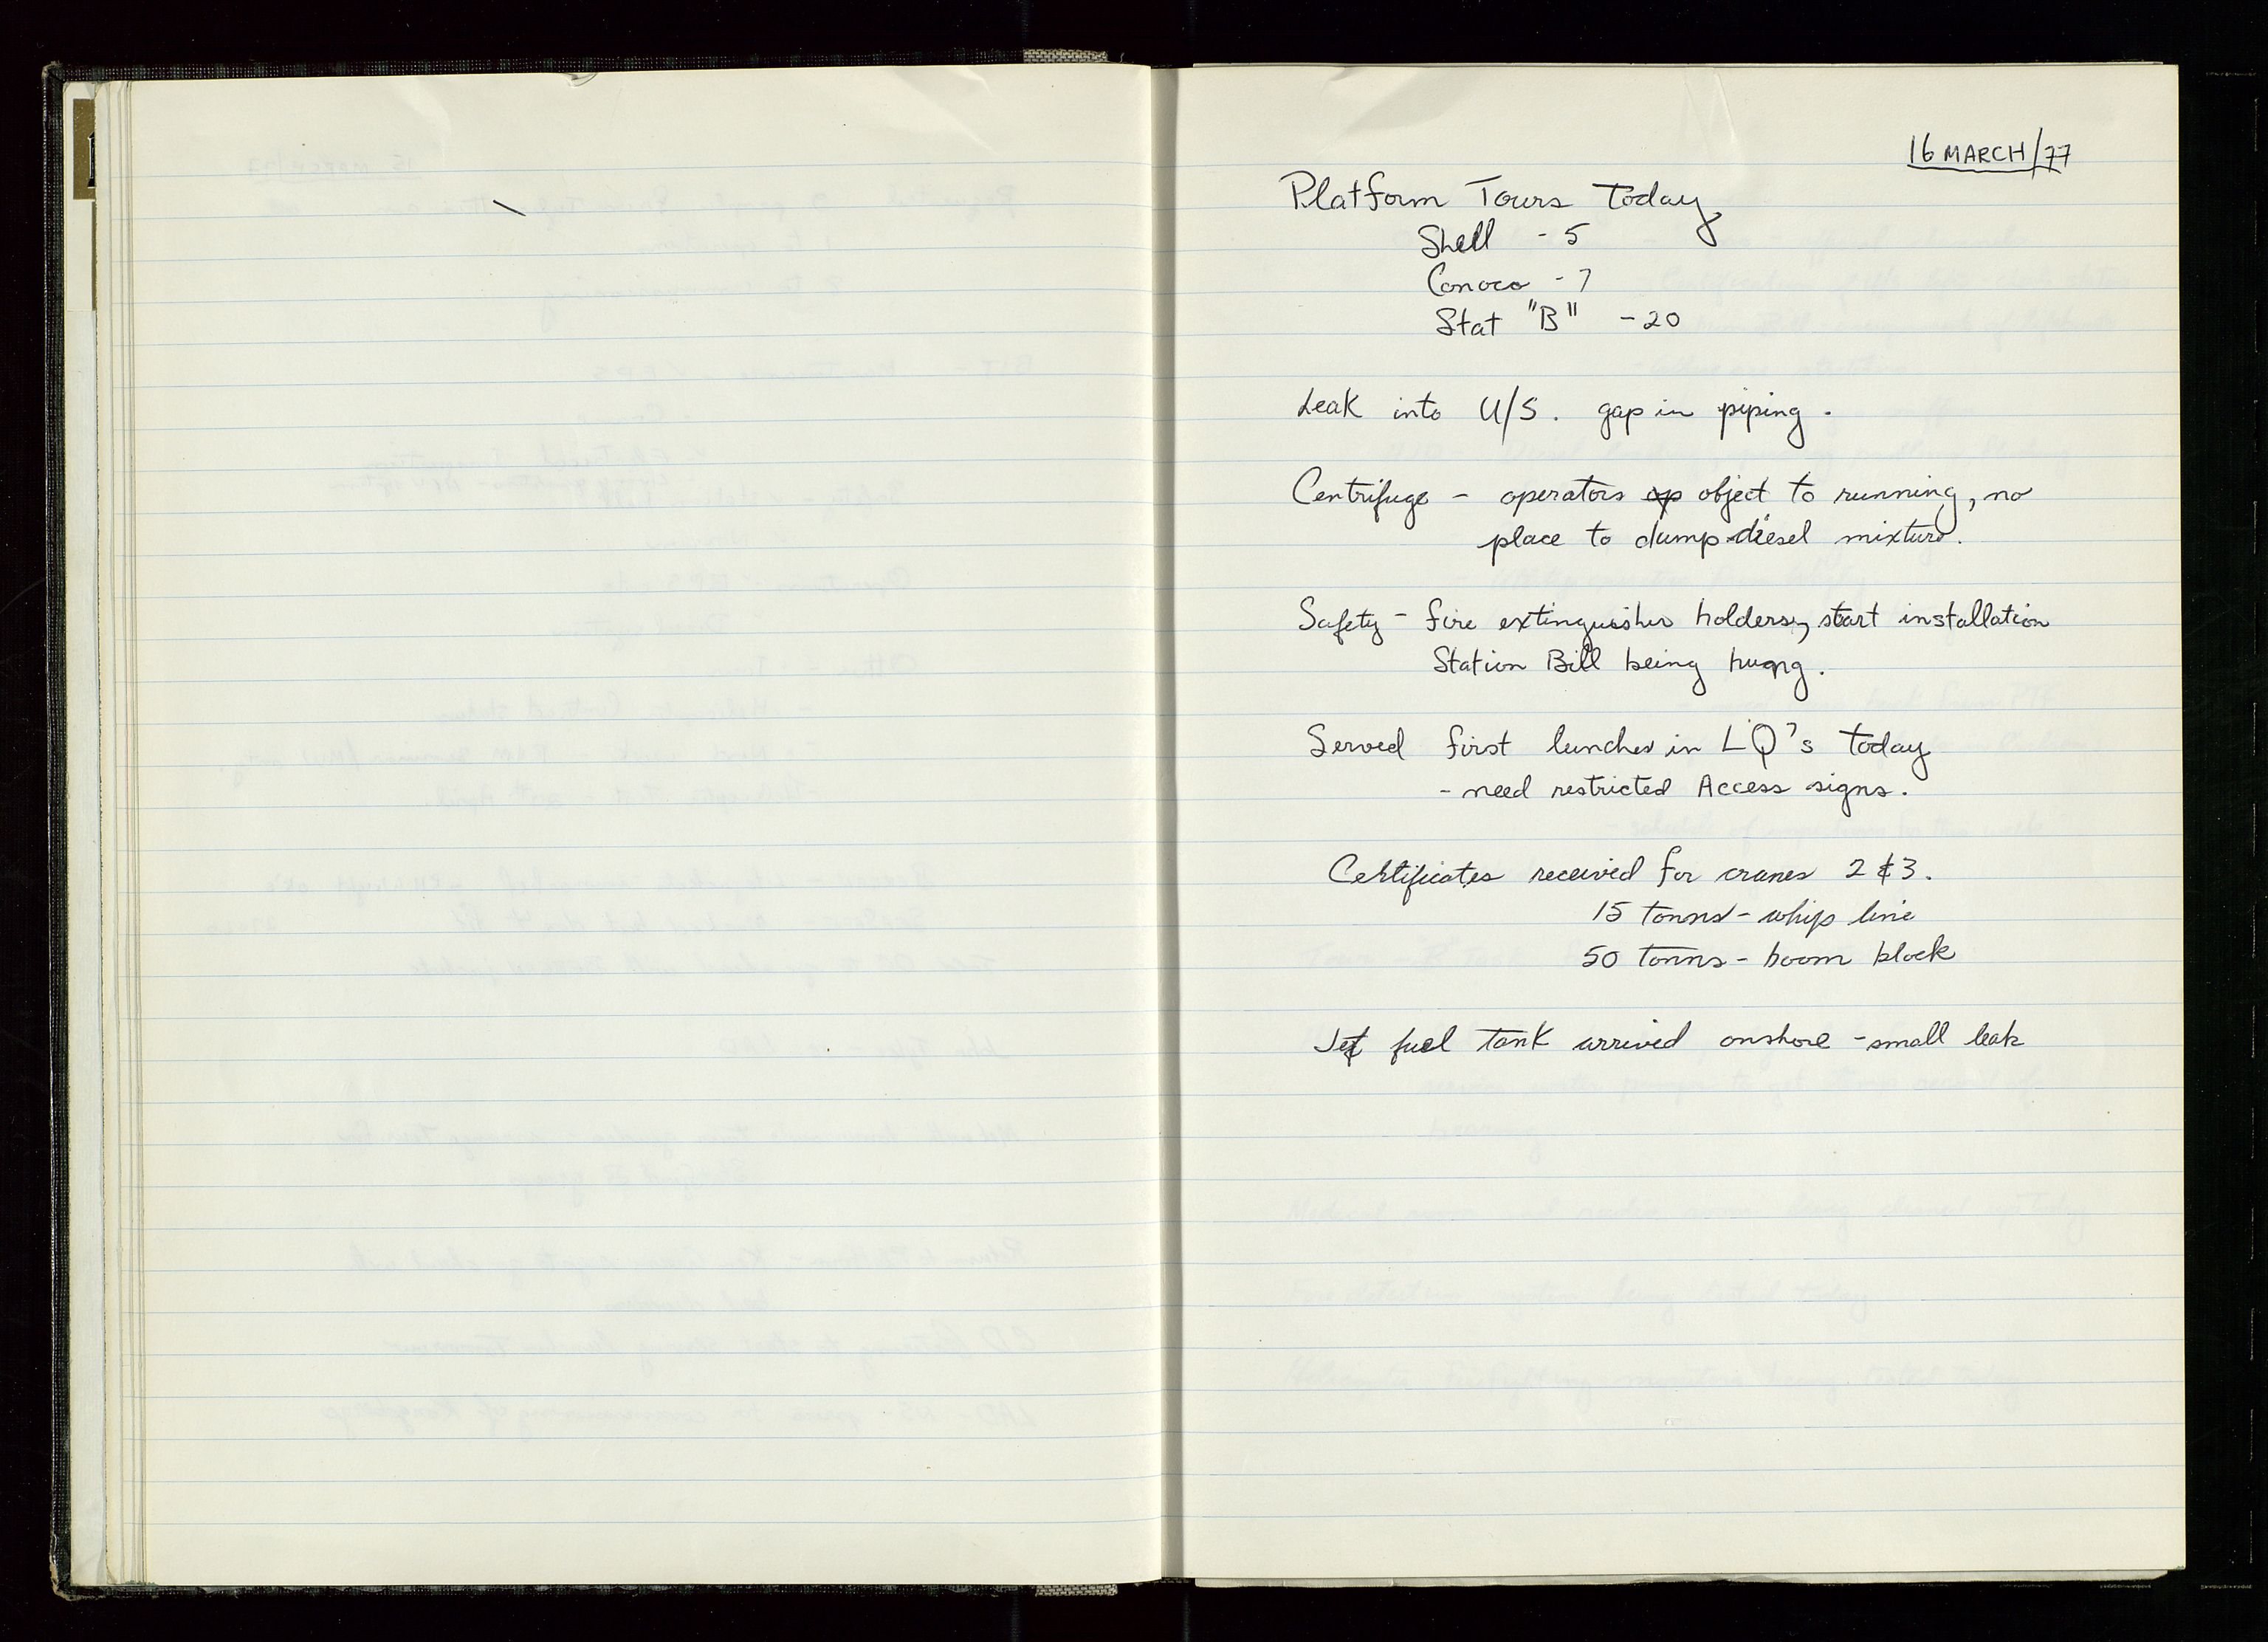 16 MARCH/77
Platform Tours Today
Shell - 5
Conoco - 7
Stat "B" - 20
Leak into U/S. gap in piping.
Centrifuge - operators op object to running, no
place to dump diesel mixture.
Safety - fire extinguisher holders, start installation
Station Bill being hung.
Served first lunches in LQ's today
- need restricted Access signs.
Certificates received for cranes 2 & 3.
15 tonns - whip line
50 tonns - boom block
Jet fuel tank arrived onshore - small leak